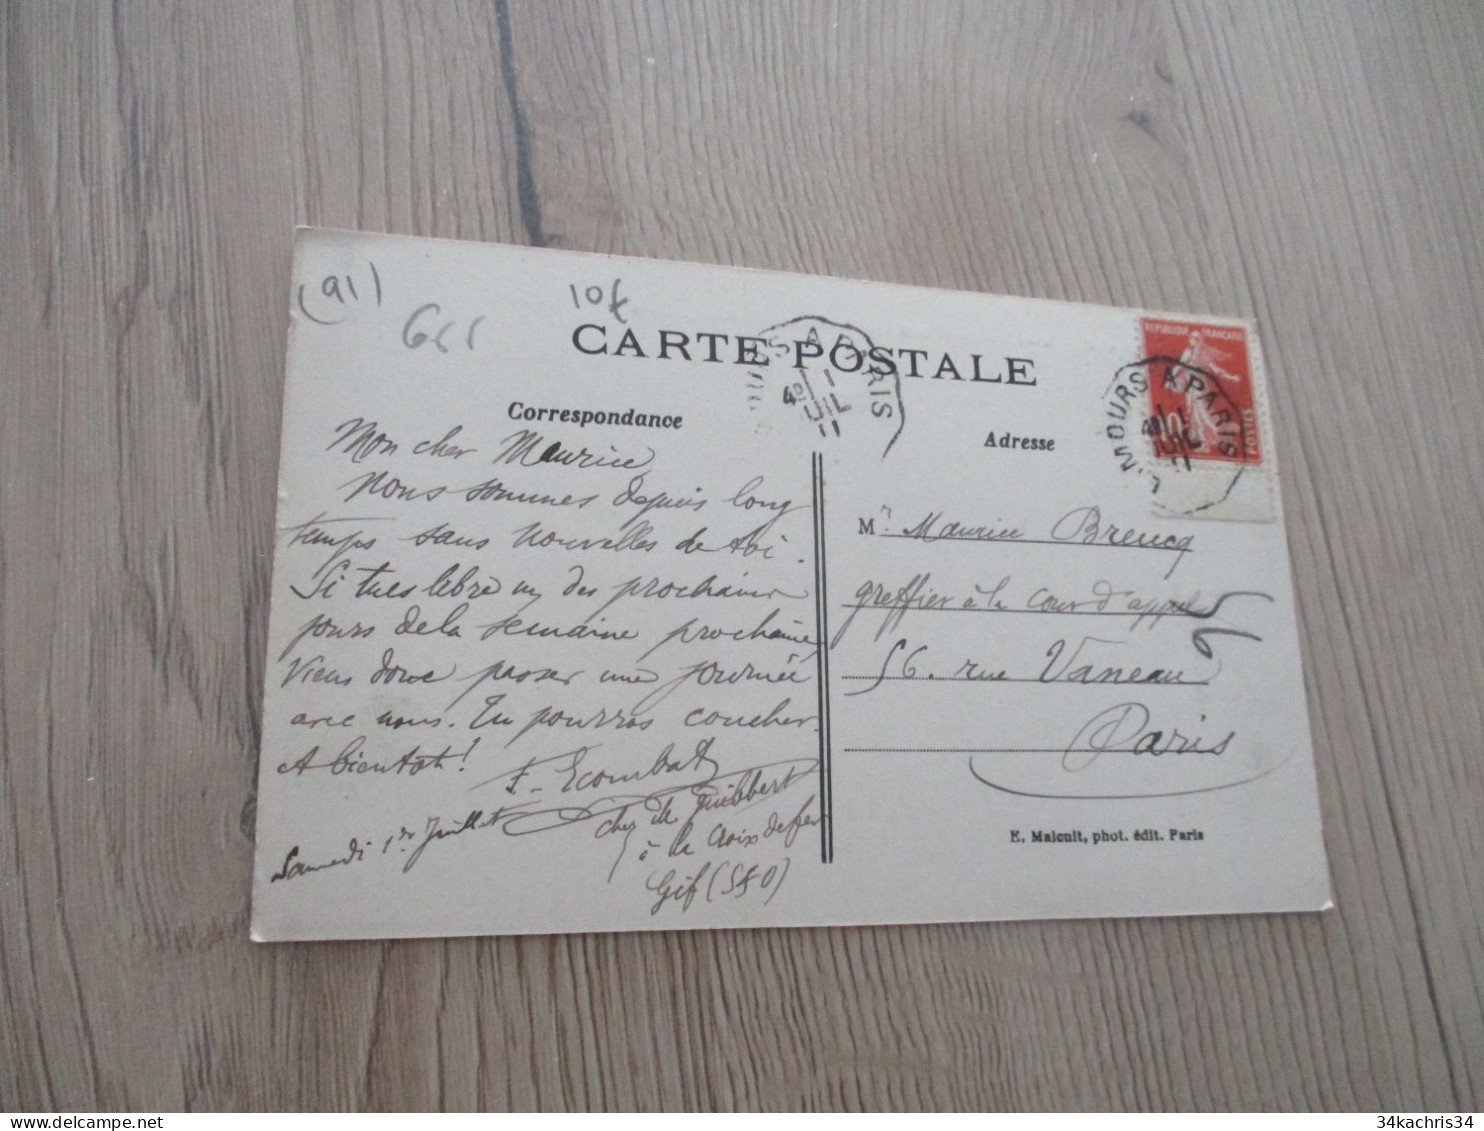 (91)
10€
CARTE POSTALE
Correspondance
Adresse
REPUBLIQUE FRANÇAISE
10
POSTES
MOURS A PARIS
S A PARIS
Mon cher Maurice,
Nous sommes depuis long
temps sans nouvelles de toi.
Si tu es libre un des prochains
jours de la semaine prochaine,
viens donc passer une journée
avec nous. Tu pourras coucher.
A bientôt!
Samedi 1er Juillet
chez Mr Guibbert
à la Croix de fer
Gif (S&O)
Mr Maurice Breucq
greffier à la cour d'appel
56. rue Vaneau
Paris
56
E. Malcuit, phot. édit. Paris
34kachris34